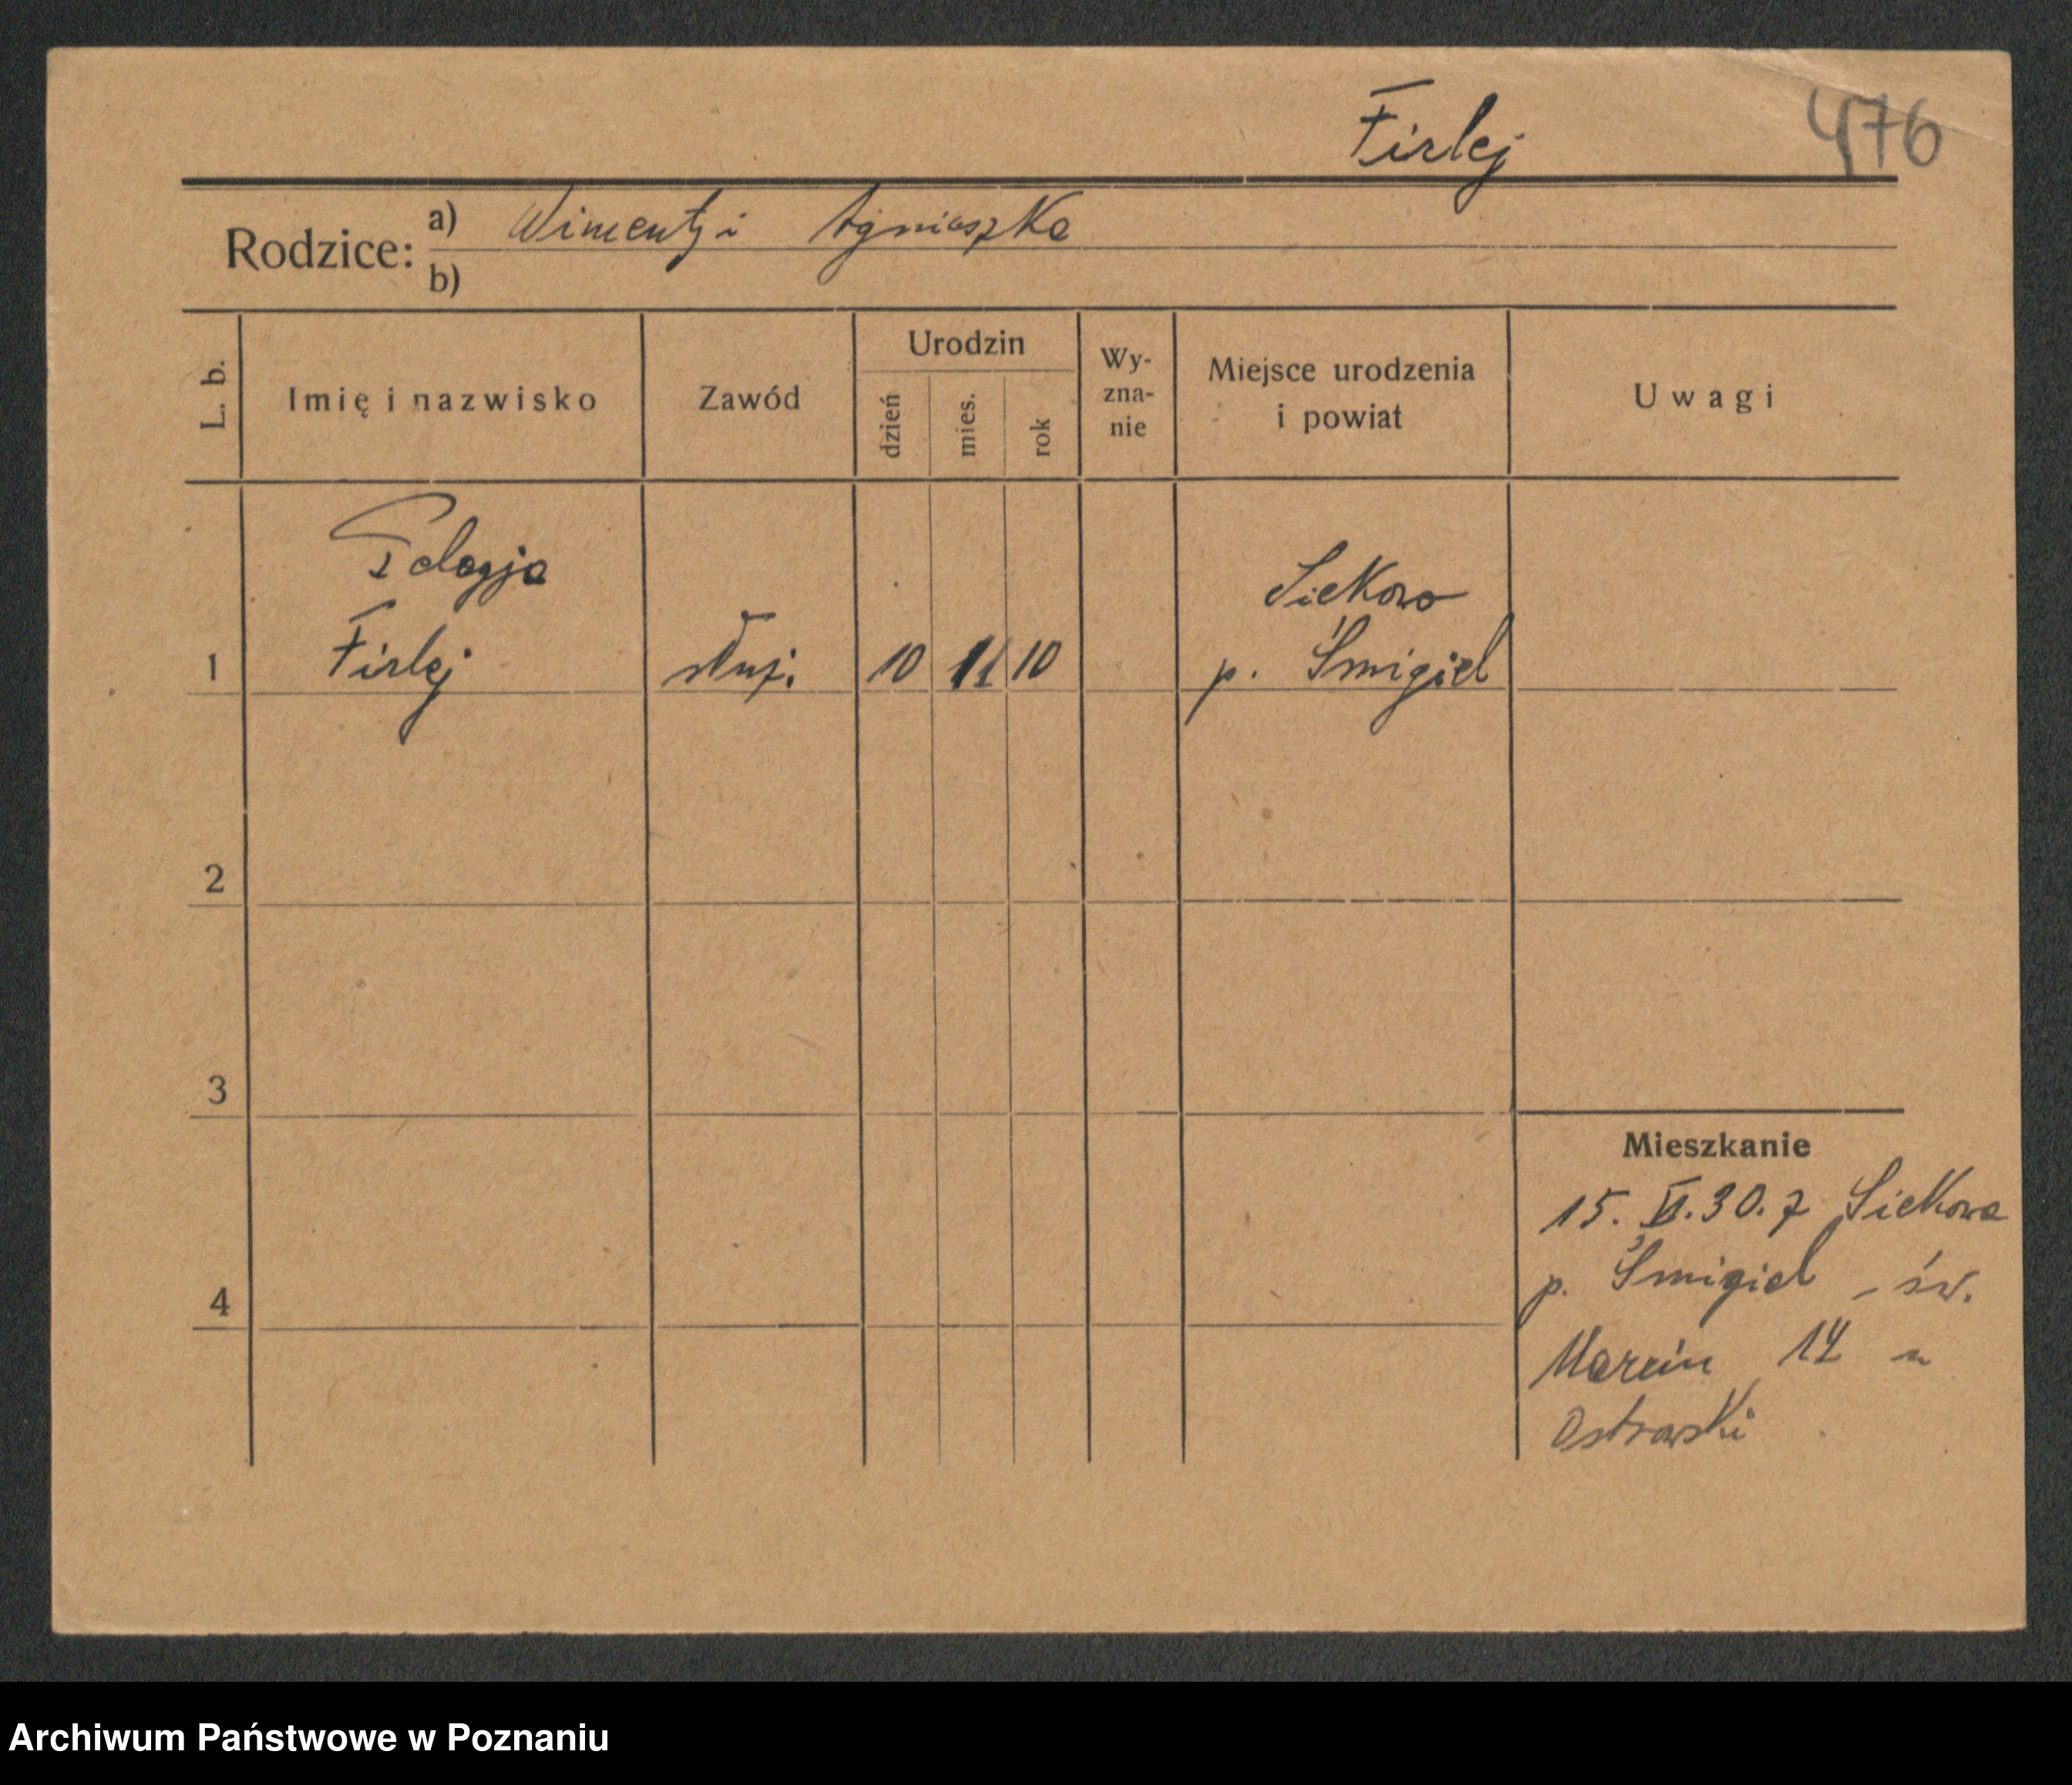 Firlej 476
Rodzice: a) Wincenty i Agnieszka
b)
L. b. Imię i nazwisko Zawód Urodzin dzień mies. rok Wy-zna-nie Miejsce urodzenia i powiat Uwagi
Pelagja
Siekowo
1 Firlej służ. 10 11 10 p. Śmigiel
2
3
Mieszkanie
15. VI. 30. z Siekowa
p. Śmigiel - św.
4
Marcin 14 u
Ostrowski
Archiwum Państwowe w Poznaniu